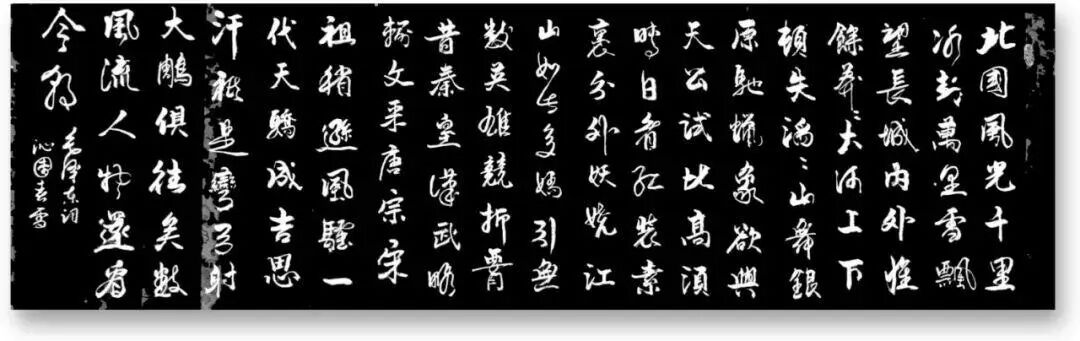 北國風光千里
冰封萬里雪飄
望長城內外惟
餘莽〻大河上下
頓失滔〻山舞銀
原馳蠟象欲與
天公試比高須
晴日看紅裝素
裹分外妖嬈江
山如此多嬌引無
數英雄競折腰
昔秦皇漢武略
輸文采唐宗宋
祖稍遜風騷一
代天驕成吉思
汗祇是彎弓射
大鵰俱往矣數
風流人物還看
今朝
毛澤東詞
沁園春雪